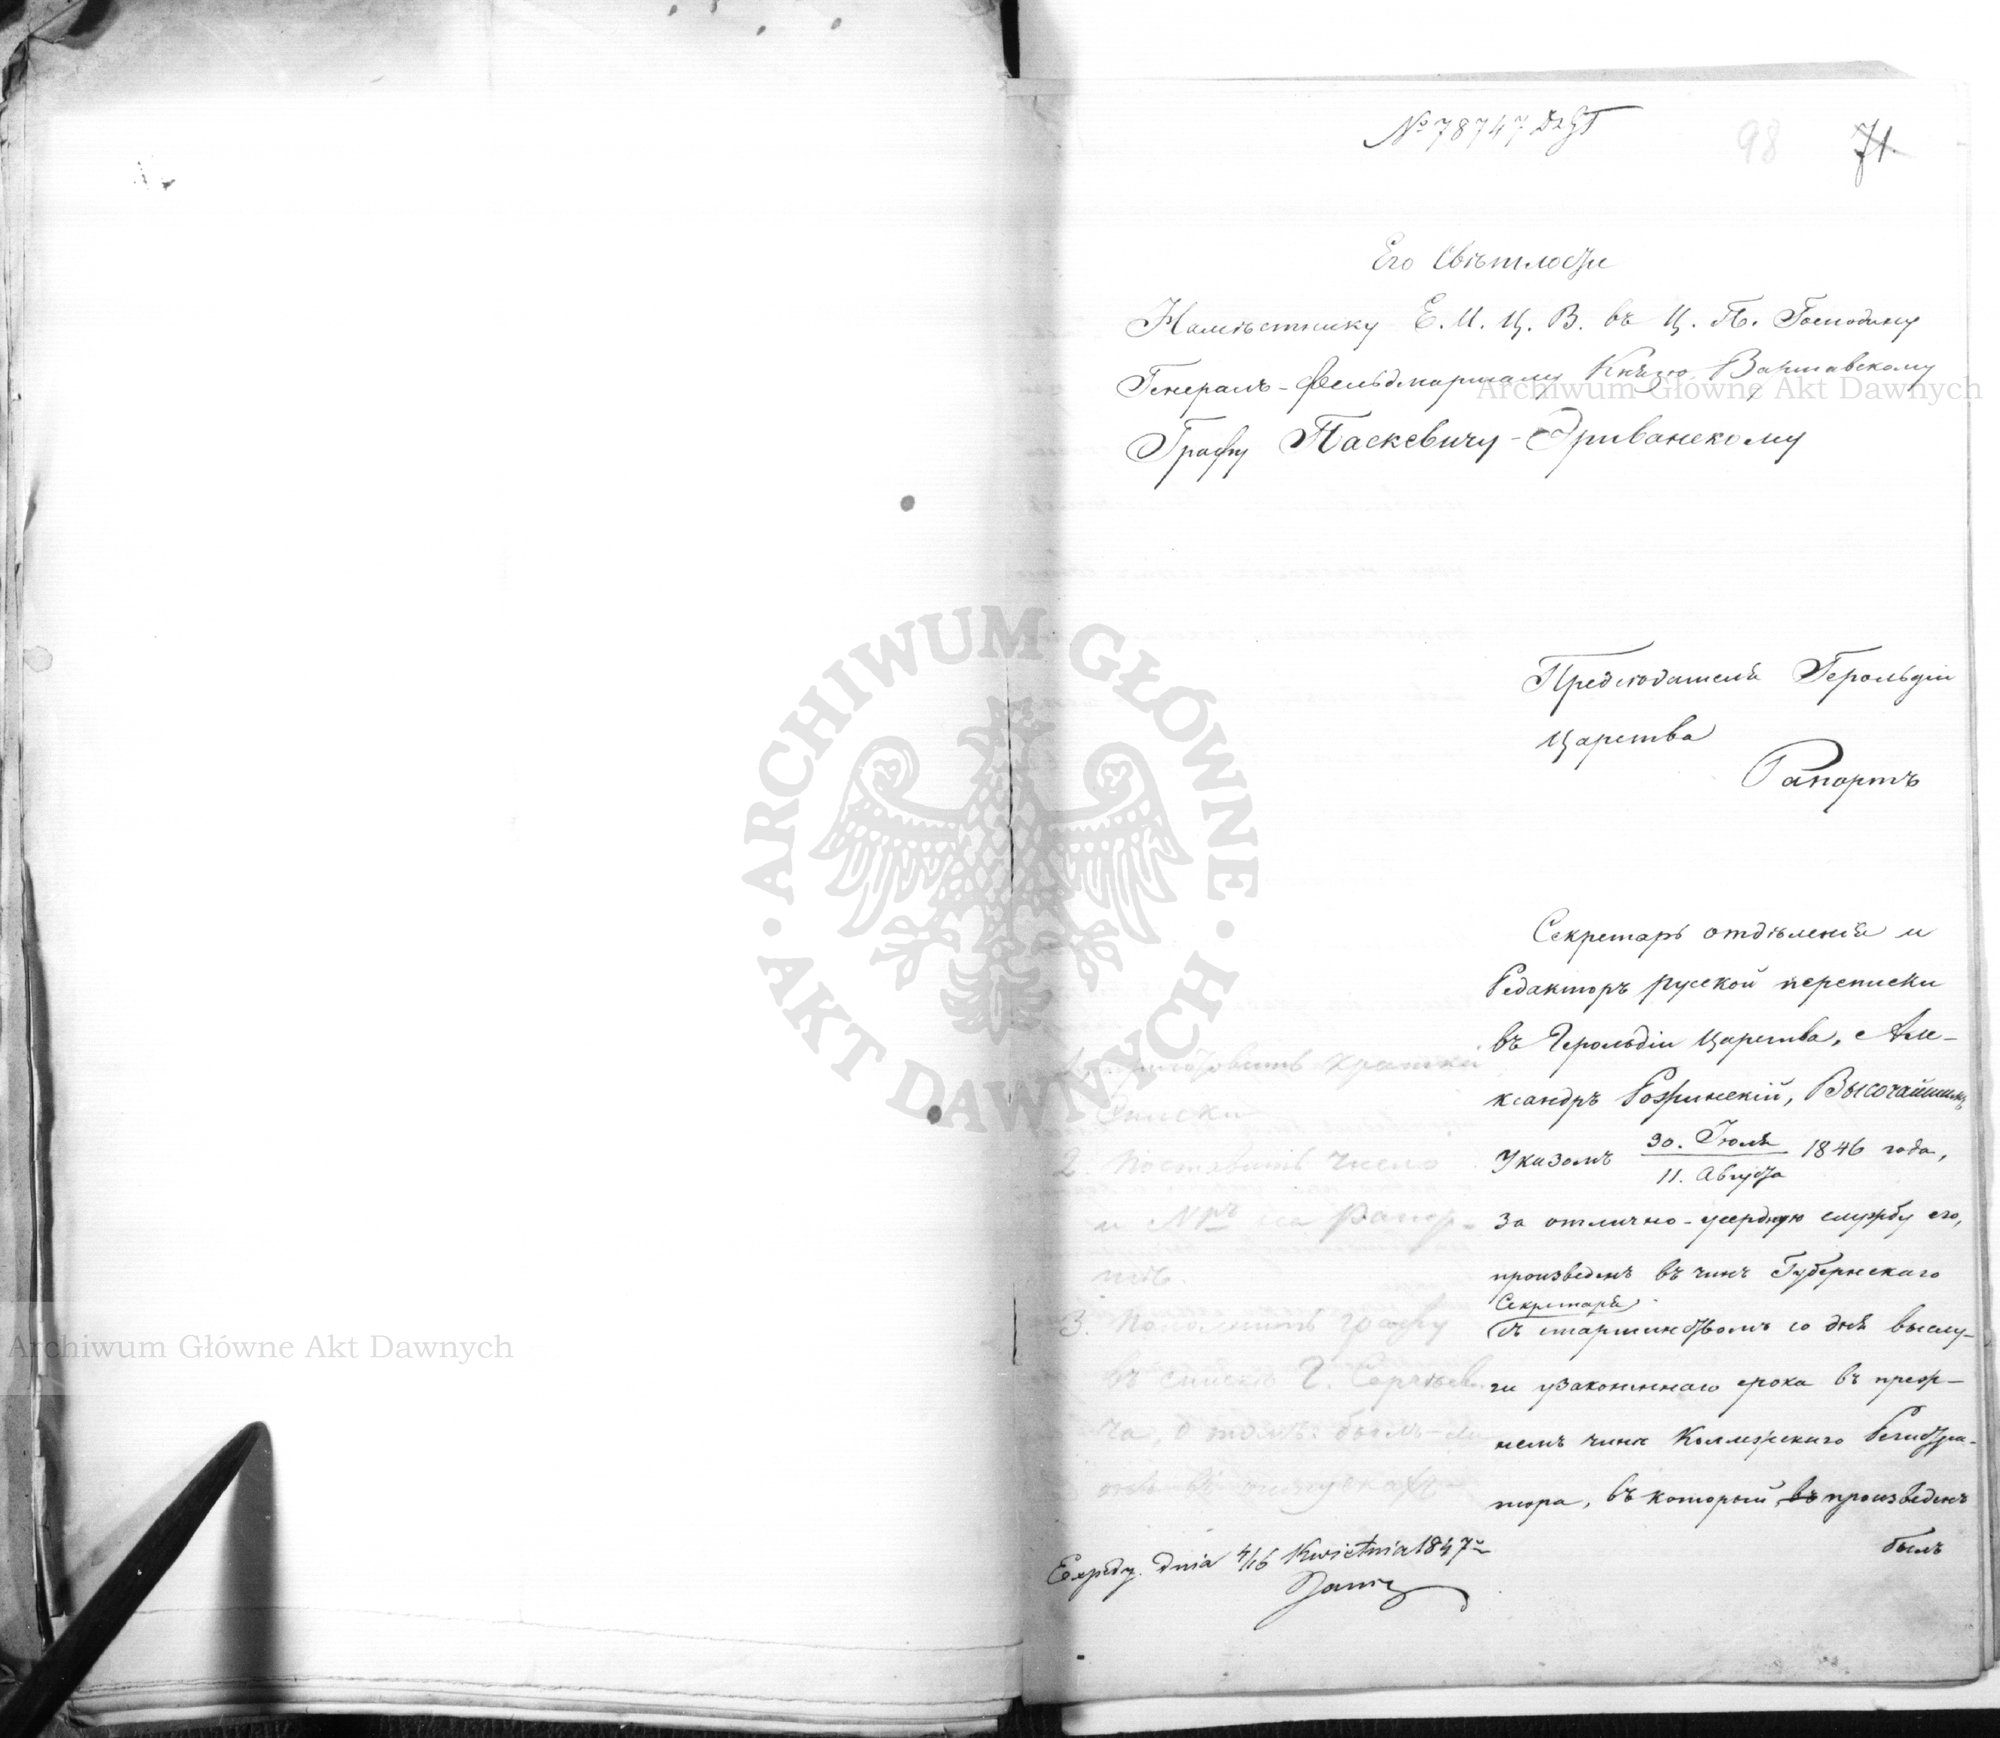 № 78747
98 71.
Его Свѣтлости
Намѣстнику Е. И. Ц. В. въ Ц. П. Господину
Генералъ-Фельдмаршалу Князю Варшавскому
Графу Паскевичу-Эриванскому
Предсѣдателя Герольдіи
Царства
Рапортъ
Секретарь отдѣленія и
Редакторъ русской переписки
въ Герольдіи Царства, Але-
ксандръ Рофинскій, Высочайшимъ
Указомъ 30. Іюля / 11. Августа 1846 года,
за отлично-усердную службу его,
произведенъ въ чинъ Губернскаго
Секретаря
съ старшинствомъ со дня выслу-
ги узаконеннаго срока въ преж-
немъ чинѣ Коллежскаго Регистра-
тора, въ который въ произведенъ
былъ
1. краткій
Списки
2 Поставить число
и Nръ на Рапор-
тѣ.
3. Пополнить графу
въ спискѣ Г.
ча, о томъ: былъ-ли
онъ въ отпускахъ
Expedy. dnia 4/16 Kwietnia 1847
Archiwum Główne Akt Dawnych
Archiwum Główne Akt Dawnych
ARCHIWUM GŁÓWNE · AKT DAWNYCH ·